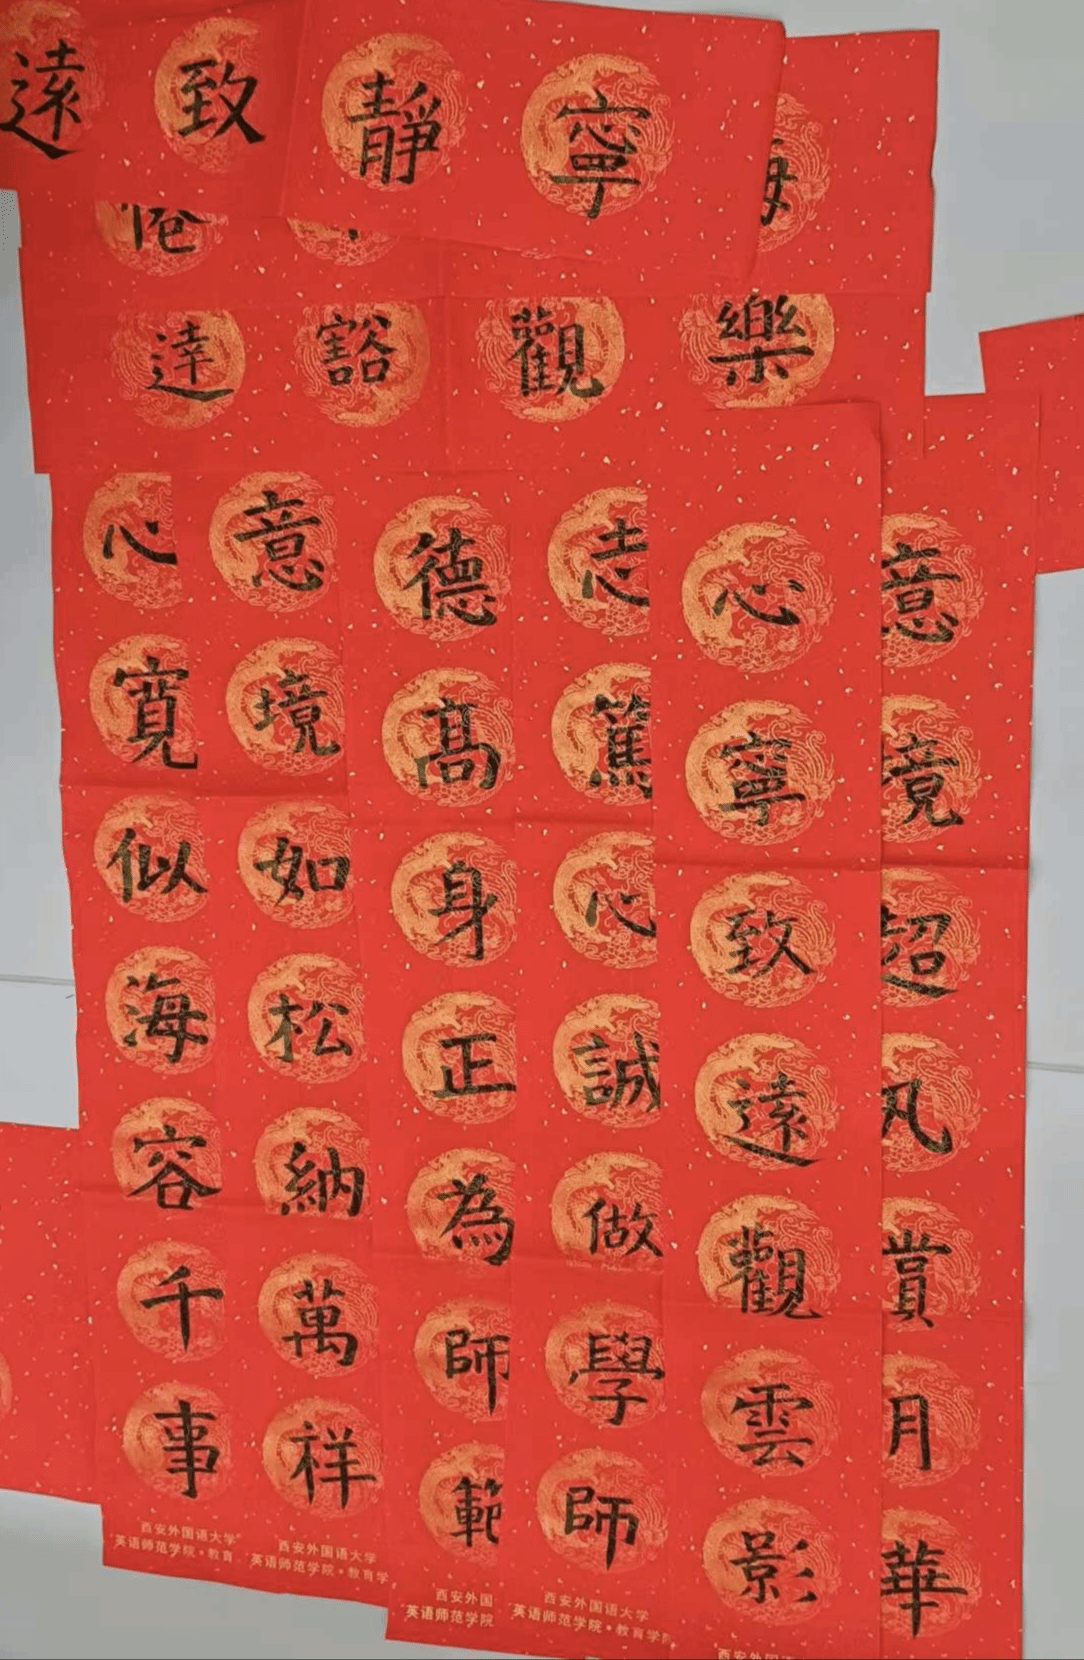 寧靜致遠
樂觀豁達
心寬似海容千事
意境如松納萬祥
德高身正為師範
志篤心誠做學師
心寧致遠觀雲影
意境超凡賞月華
西安外国语大学
英语师范学院·教育
西安外国语大学
英语师范学院·教育学
西安外国
英语师范学院
西安外国语大学
英语师范学院·教育学院
西安外国语